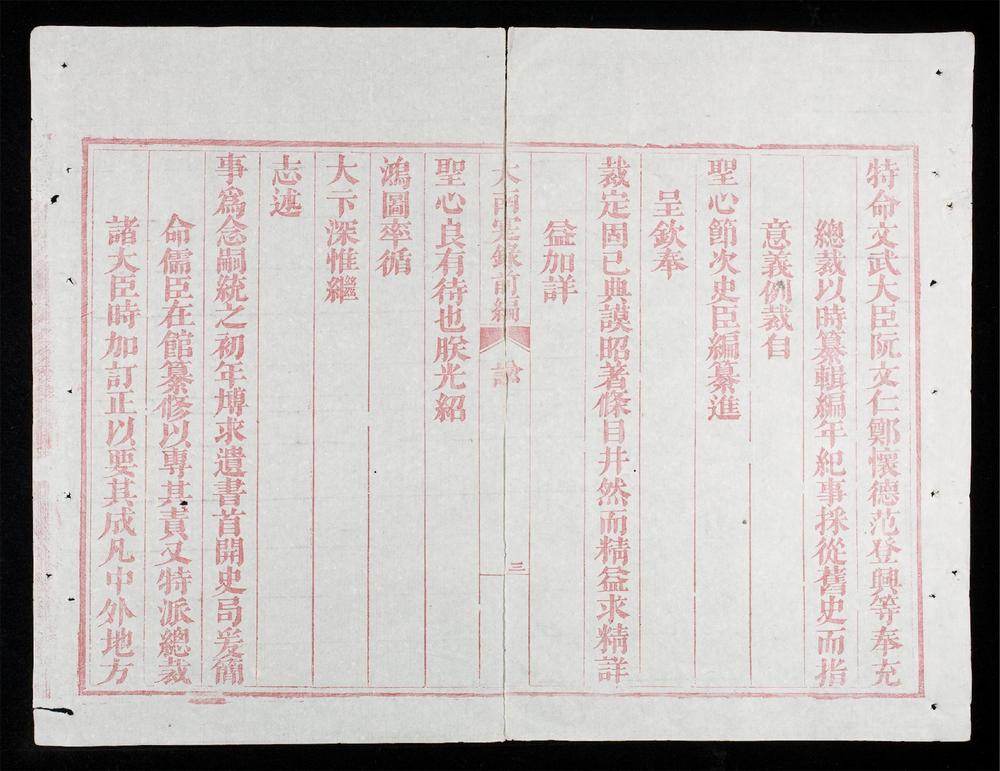 特命文武大臣阮文仁鄭懷德范登興等奉充
總裁以時纂輯編年紀事採從舊史而指
意義例裁自
聖心節次史臣編纂進
呈欽奉
裁定固已典謨昭著條目井然而精益求精詳
益加詳
大南寔錄前編 諭 三
聖心良有待也朕光紹
鴻圖率循
大卞深惟繼
志述
事爲念嗣統之初年博求遺書首開史局爰簡
命儒臣在館纂修以專其責又特派總裁
諸大臣時加訂正以要其成凡中外地方